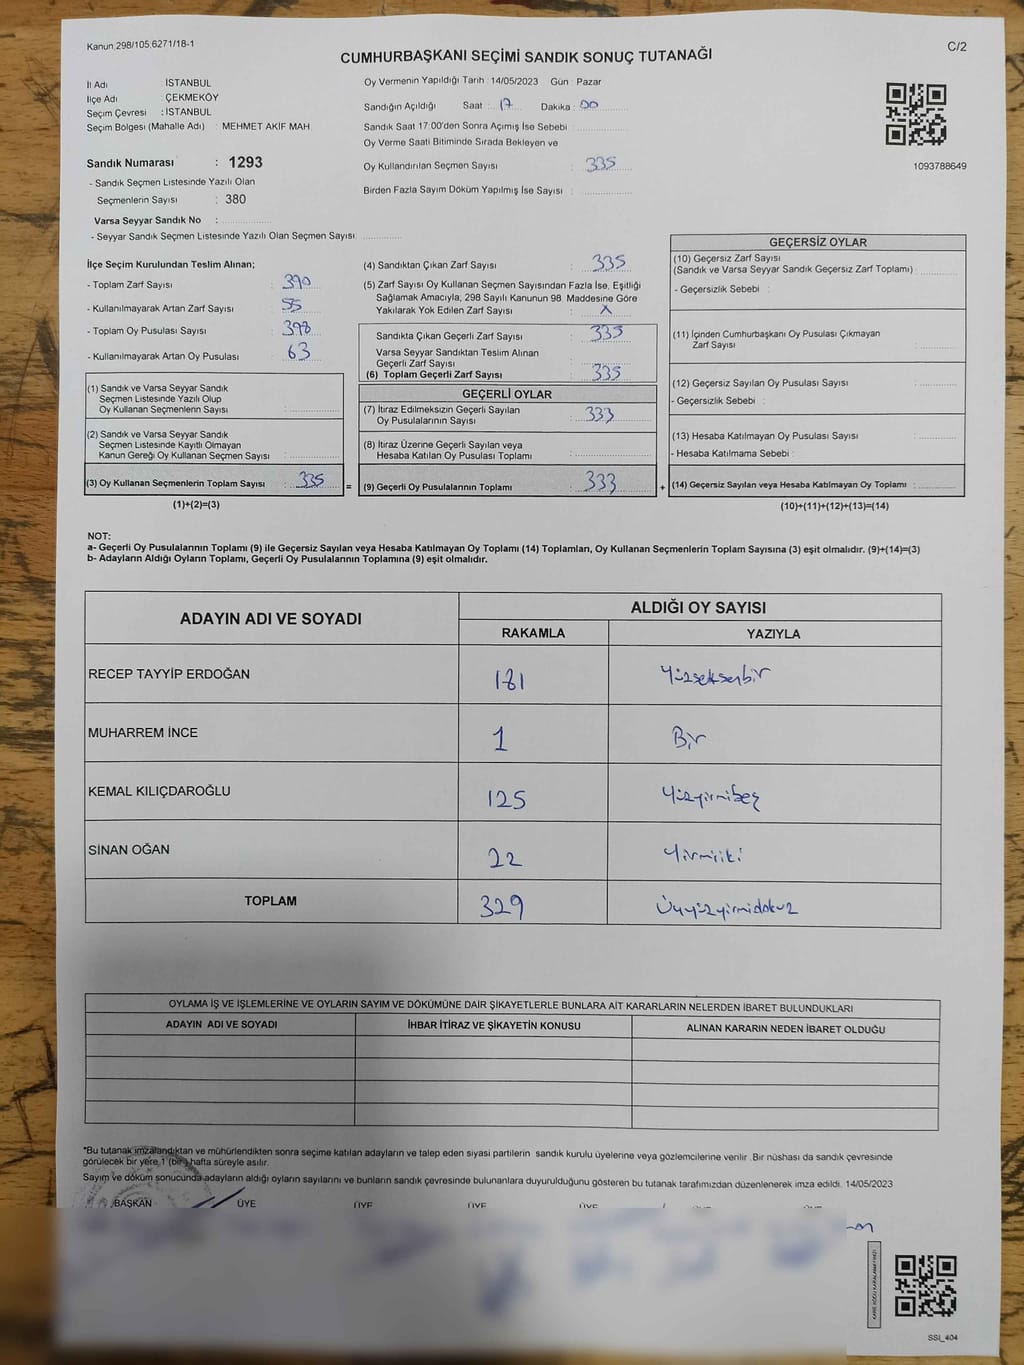 Kanun 298/105.6271/18-1
C/2
CUMHURBAŞKANI SEÇİMİ SANDIK SONUÇ TUTANAĞI
İl Adı : İSTANBUL
İlçe Adı : ÇEKMEKÖY
Seçim Çevresi : İSTANBUL
Seçim Bölgesi (Mahalle Adı) : MEHMET AKİF MAH.
Oy Vermenin Yapıldığı Tarih : 14/05/2023 Gün : Pazar
Sandığın Açıldığı Saat : 17 Dakika : 00
Sandık Saat 17:00'den Sonra Açımış İse Sebebi :
Oy Verme Saati Bitiminde Sırada Bekleyen ve
Oy Kullandırılan Seçmen Sayısı : 335
Birden Fazla Sayım Döküm Yapılmış İse Sayısı :
1093788649
Sandık Numarası : 1293
- Sandık Seçmen Listesinde Yazılı Olan
Seçmenlerin Sayısı : 380
Varsa Seyyar Sandık No :
- Seyyar Sandık Seçmen Listesinde Yazılı Olan Seçmen Sayısı:
İlçe Seçim Kurulundan Teslim Alınan;
- Toplam Zarf Sayısı : 390
- Kullanılmayarak Artan Zarf Sayısı : 55
- Toplam Oy Pusulası Sayısı : 398
- Kullanılmayarak Artan Oy Pusulası : 63
(1) Sandık ve Varsa Seyyar Sandık
Seçmen Listesinde Yazılı Olup
Oy Kullanan Seçmenlerin Sayısı :
(2) Sandık ve Varsa Seyyar Sandık
Seçmen Listesinde Kayıtlı Olmayan
Kanun Gereği Oy Kullanan Seçmen Sayısı :
(3) Oy Kullanan Seçmenlerin Toplam Sayısı : 335
(1)+(2)=(3)
(4) Sandıktan Çıkan Zarf Sayısı : 335
(5) Zarf Sayısı Oy Kullanan Seçmen Sayısından Fazla İse, Eşitliği
Sağlamak Amacıyla, 298 Sayılı Kanunun 98. Maddesine Göre
Yakılarak Yok Edilen Zarf Sayısı : X
Sandıkta Çıkan Geçerli Zarf Sayısı : 335
Varsa Seyyar Sandıktan Teslim Alınan
Geçerli Zarf Sayısı :
(6) Toplam Geçerli Zarf Sayısı : 335
GEÇERLİ OYLAR
(7) İtiraz Edilmeksizin Geçerli Sayılan
Oy Pusulalarının Sayısı : 333
(8) İtiraz Üzerine Geçerli Sayılan veya
Hesaba Katılan Oy Pusulası Toplamı :
= (9) Geçerli Oy Pusulalarının Toplamı : 333 +
GEÇERSİZ OYLAR
(10) Geçersiz Zarf Sayısı
(Sandık ve Varsa Seyyar Sandık Geçersiz Zarf Toplamı) :
- Geçersizlik Sebebi :
(11) İçinden Cumhurbaşkanı Oy Pusulası Çıkmayan
Zarf Sayısı :
(12) Geçersiz Sayılan Oy Pusulası Sayısı :
- Geçersizlik Sebebi :
(13) Hesaba Katılmayan Oy Pusulası Sayısı :
- Hesaba Katılmama Sebebi :
(14) Geçersiz Sayılan veya Hesaba Katılmayan Oy Toplamı :
(10)+(11)+(12)+(13)=(14)
NOT:
a- Geçerli Oy Pusulalarının Toplamı (9) ile Geçersiz Sayılan veya Hesaba Katılmayan Oy Toplamı (14) Toplamları, Oy Kullanan Seçmenlerin Toplam Sayısına (3) eşit olmalıdır. (9)+(14)=(3)
b- Adayların Aldığı Oyların Toplamı, Geçerli Oy Pusulalarının Toplamına (9) eşit olmalıdır.
ADAYIN ADI VE SOYADI
ALDIĞI OY SAYISI
RAKAMLA YAZIYLA
RECEP TAYYİP ERDOĞAN 181 Yüzseksenbir
MUHARREM İNCE 1 Bir
KEMAL KILIÇDAROĞLU 125 Yüzyirmibeş
SİNAN OĞAN 22 Yirmiiki
TOPLAM 329 Üçyüzyirmidokuz
OYLAMA İŞ VE İŞLEMLERİNE VE OYLARIN SAYIM VE DÖKÜMÜNE DAİR ŞİKAYETLERLE BUNLARA AİT KARARLARIN NELERDEN İBARET BULUNDUKLARI
ADAYIN ADI VE SOYADI İHBAR İTİRAZ VE ŞİKAYETİN KONUSU ALINAN KARARIN NEDEN İBARET OLDUĞU
*Bu tutanak imzalandıktan ve mühürlendikten sonra seçime katılan adayların ve talep eden siyasi partilerin sandık kurulu üyelerine veya gözlemcilerine verilir. Bir nüshası da sandık çevresinde
görülecek bir yere 1 (bir) hafta süreyle asılır.
Sayım ve döküm sonucunda adayların aldığı oyların sayılarını ve bunların sandık çevresinde bulunanlara duyurulduğunu gösteren bu tutanak tarafımızdan düzenlenerek imza edildi. 14/05/2023
BAŞKAN ÜYE ÜYE ÜYE ÜYE
SSI_404